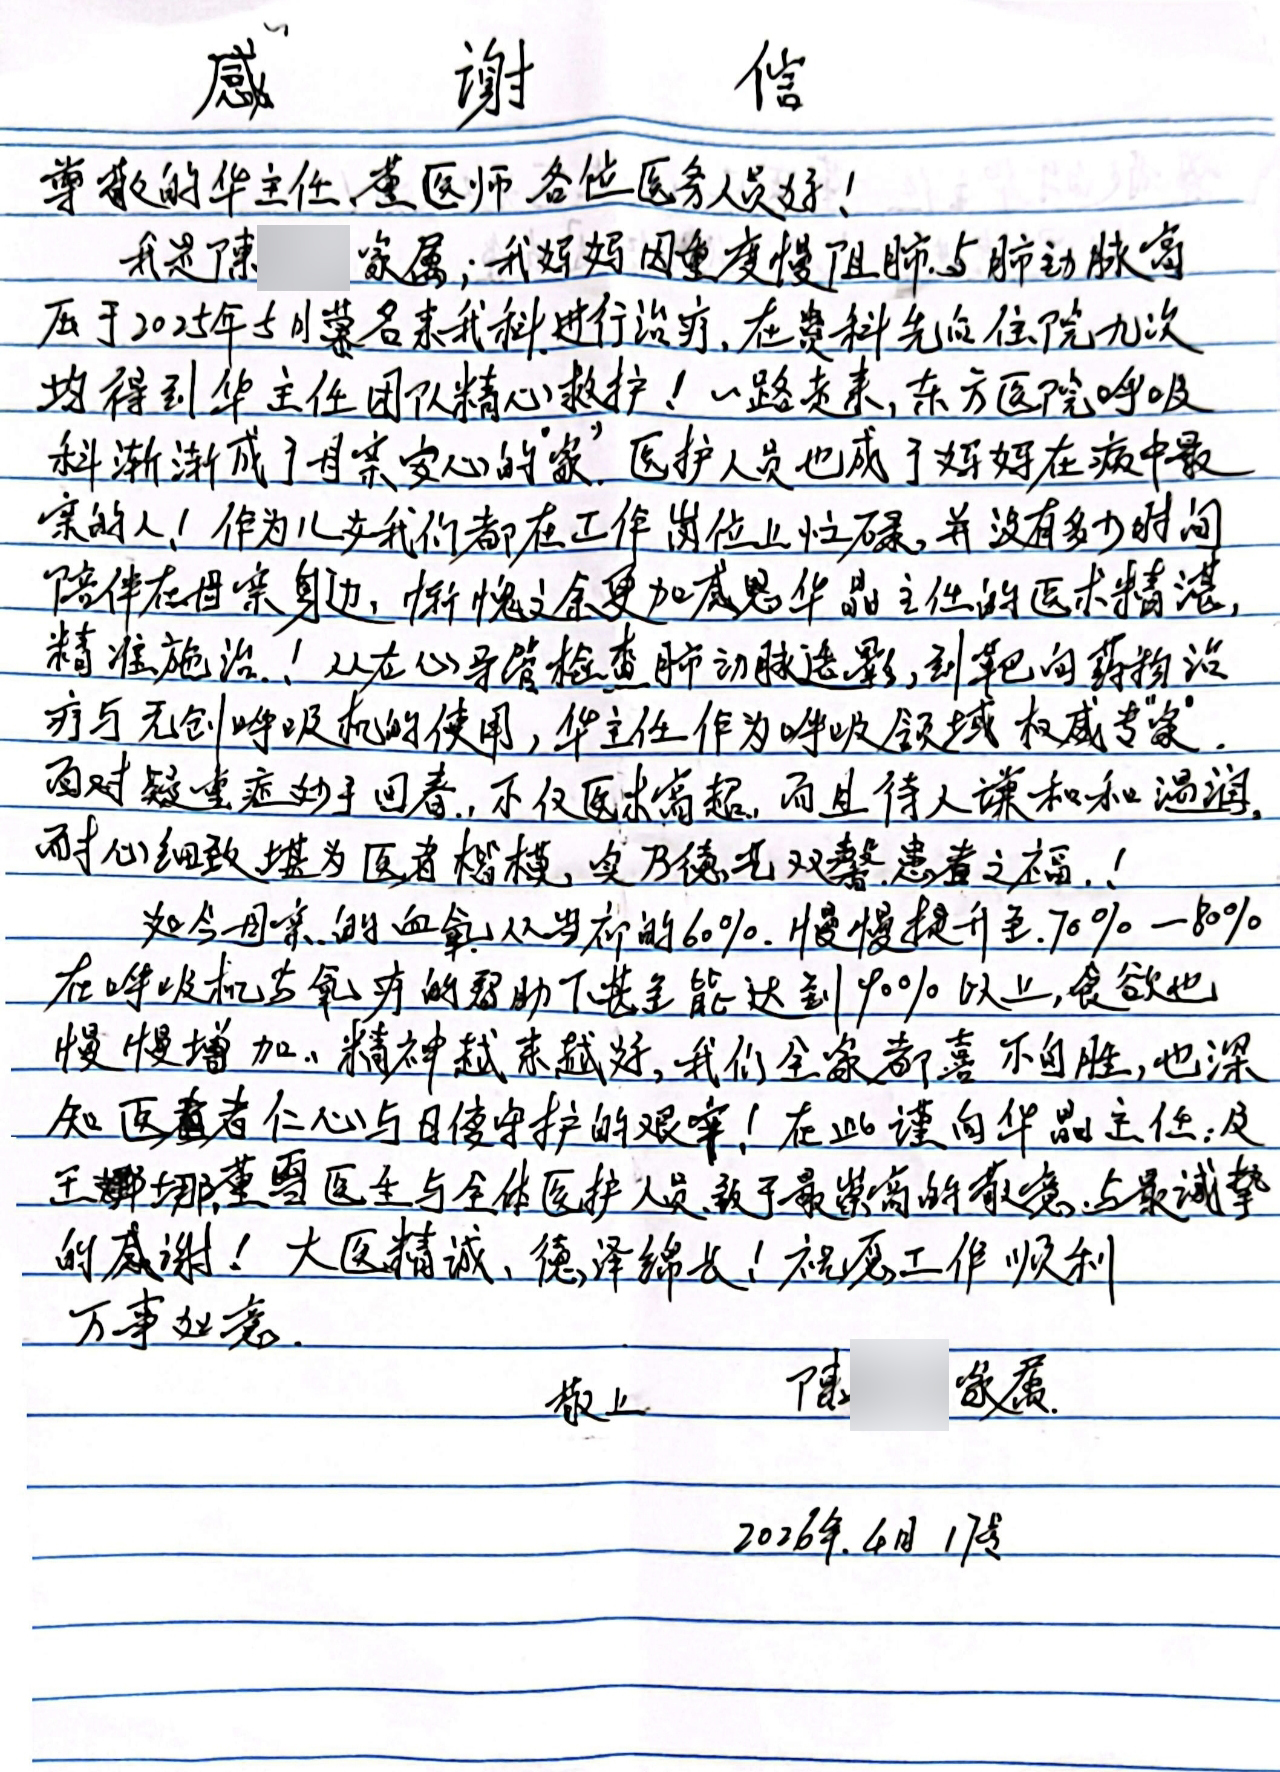 感谢信
尊敬的华主任、董医师各位医务人员好！
我是陳 家属；我妈妈因重度慢阻肺与肺动脉高
压于2025年5月慕名来我科进行治疗，在贵科先后住院九次
均得到华主任团队精心救护！一路走来，东方医院呼吸
科渐渐成了母亲安心的“家”。医护人员也成了妈妈在病中最
亲的人！作为儿女我们都在工作岗位上忙碌，并没有多少时间
陪伴在母亲身边，惭愧之余更加感恩华晶主任的医术精湛，
精准施治！从右心导管检查肺动脉造影，到靶向药物治
疗与无创呼吸机的使用，华主任作为呼吸领域权威专“家”．
面对疑重症妙手回春，不仅医术高超，而且待人谦和和温润，
耐心细致堪为医者楷模，实乃德艺双馨，患者之福！
如今母亲的血氧从当初的60%．慢慢提升至70%—80%
在呼吸机与氧疗的帮助下甚至能达到90%以上，食欲也
慢慢增加、精神越来越好，我们全家都喜不自胜，也深
知医者仁心与日夜守护的艰辛！在此谨向华晶主任：及
王娜、董雪医生与全体医护人员致于最崇高的敬意与最诚挚
的感谢！大医精诚、德泽绵长！祝愿工作顺利
万事如意．
敬上 陳 家属．
2026年．4月17号